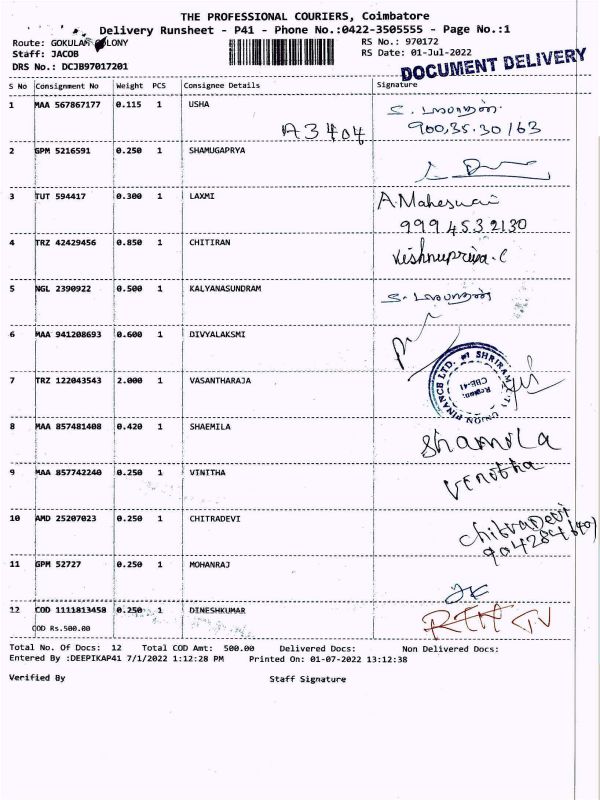 THE PROFESSIONAL COURIERS, Coimbatore
Delivery Runsheet - P41 - Phone No.:0422-3505555 - Page No.:1
Route: GOKULAM COLONY
RS No.: 970172
Staff: JACOB
RS Date: 01-Jul-2022
DRS No.: DCJB97017201
DOCUMENT DELIVERY
S No Consignment No Weight PCS Consignee Details Signature
1 MAA 567867177 0.115 1 USHA
A3404
2 GPM 5216591 0.250 1 SHAMUGAPRYA
3 TUT 594417 0.300 1 LAXMI A.Maheswari
9994532130
4 TRZ 42429456 0.850 1 CHITIRAN Vishnupriya.C
5 NGL 2390922 0.500 1 KALYANASUNDRAM
6 MAA 941208693 0.600 1 DIVYALAKSMI
7 TRZ 122043543 2.000 1 VASANTHARAJA
Region:
CBE-41
8 MAA 857481408 0.420 1 SHAEMILA Shamila
9 MAA 857742240 0.250 1 VINITHA Venitha
10 AMD 25207023 0.250 1 CHITRADEVI ChitraDevi
11 GPM 52727 0.250 1 MOHANRAJ
12 COD 1111813458 0.250 1 DINESHKUMAR
COD Rs.500.00
Total No. Of Docs: 12 Total COD Amt: 500.00 Delivered Docs: Non Delivered Docs:
Entered By :DEEPIKAP41 7/1/2022 1:12:28 PM Printed On: 01-07-2022 13:12:38
Verified By Staff Signature